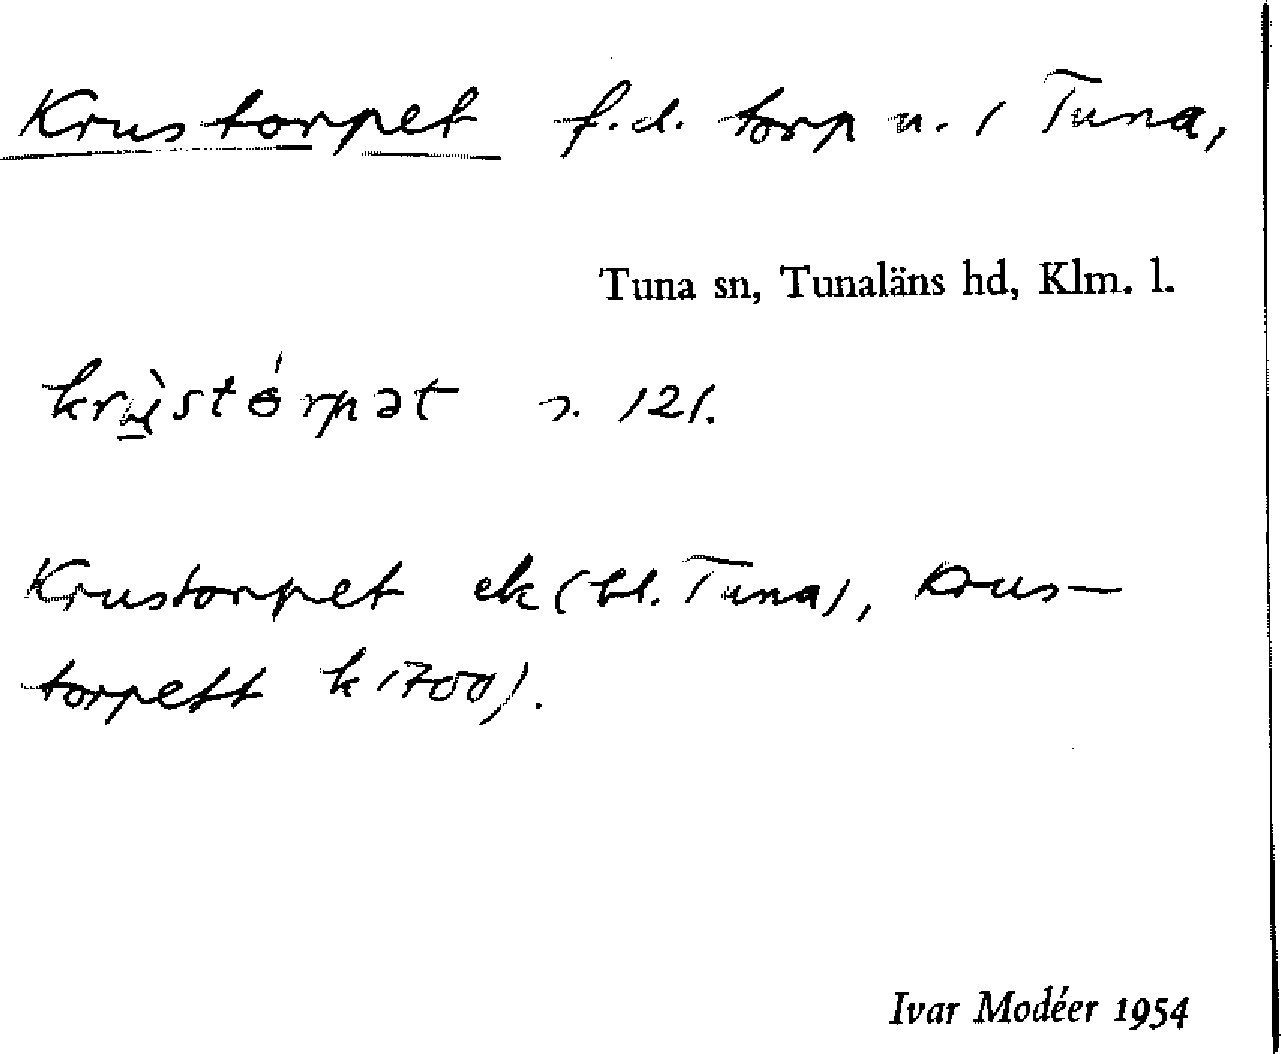 Krustorpet f.d. torp u. / Tuna,
Tuna sn, Tunaläns hd, Klm. l.
s. 121.
Krustorpet ek (bl. Tuna), Krus-
torpett k 1700).
Ivar Modéer 1954